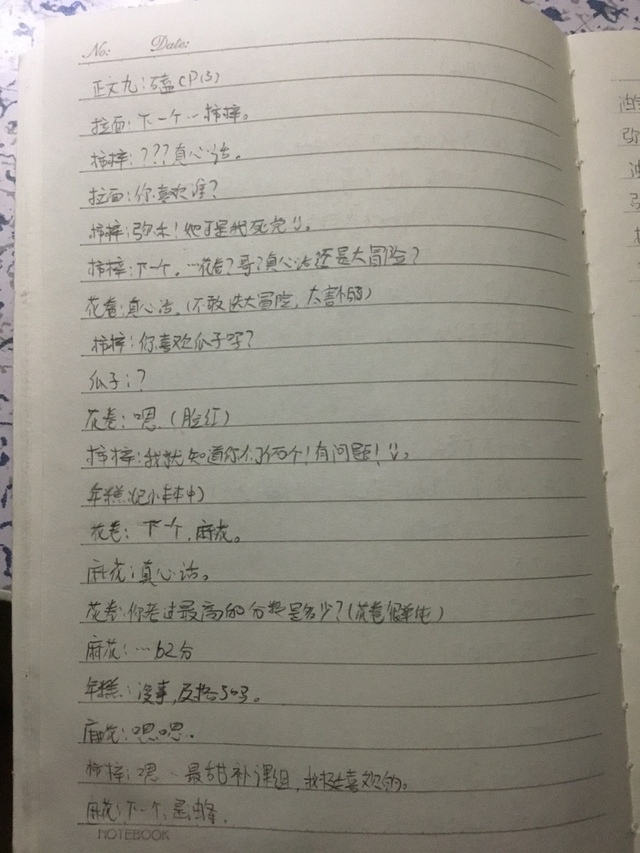 No: Date:
正文九:磕CP(3)
拉面:下一个…柿梓。
柿梓:???真心话。
拉面:你喜欢谁?
柿梓:弥禾!她可是我死党
柿梓:下一个,…花卷?哥?真心话还是大冒险?
花卷:真心话。(不敢选大冒险,太害怕)
柿梓:你喜欢瓜子吗?
瓜子:?
花卷:嗯(脸红)
柿梓:我就知道你们俩个!有问题!
年糕:(记小本本中)
花卷:下一个,麻花。
麻花:真心话。
花卷:你考过最高的分数是多少?(花卷很单纯)
麻花:…62分
年糕:没事,及格了。
麻花:嗯嗯。
柿梓:嗯…最甜补课组,我挺喜欢的。
麻花:下一个,是
NOTEBOOK
油
弥
油
弥